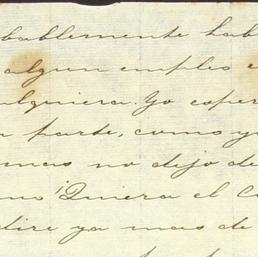 bablemente hab
algun empleo e
alquiera. Yo esper
parte, como y
mas no dejo de
no ¡Quiera el C
dire ya mas de